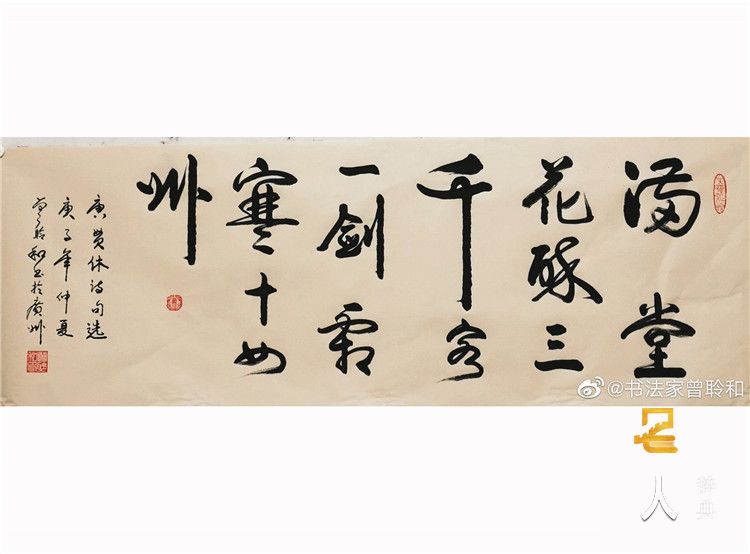 滿堂
花醉三
千客
一劍霜
寒十四
州
唐貫休詩句選
庚子年仲夏
曾聆和書於廣州
@书法家曾聆和
名人
辞典